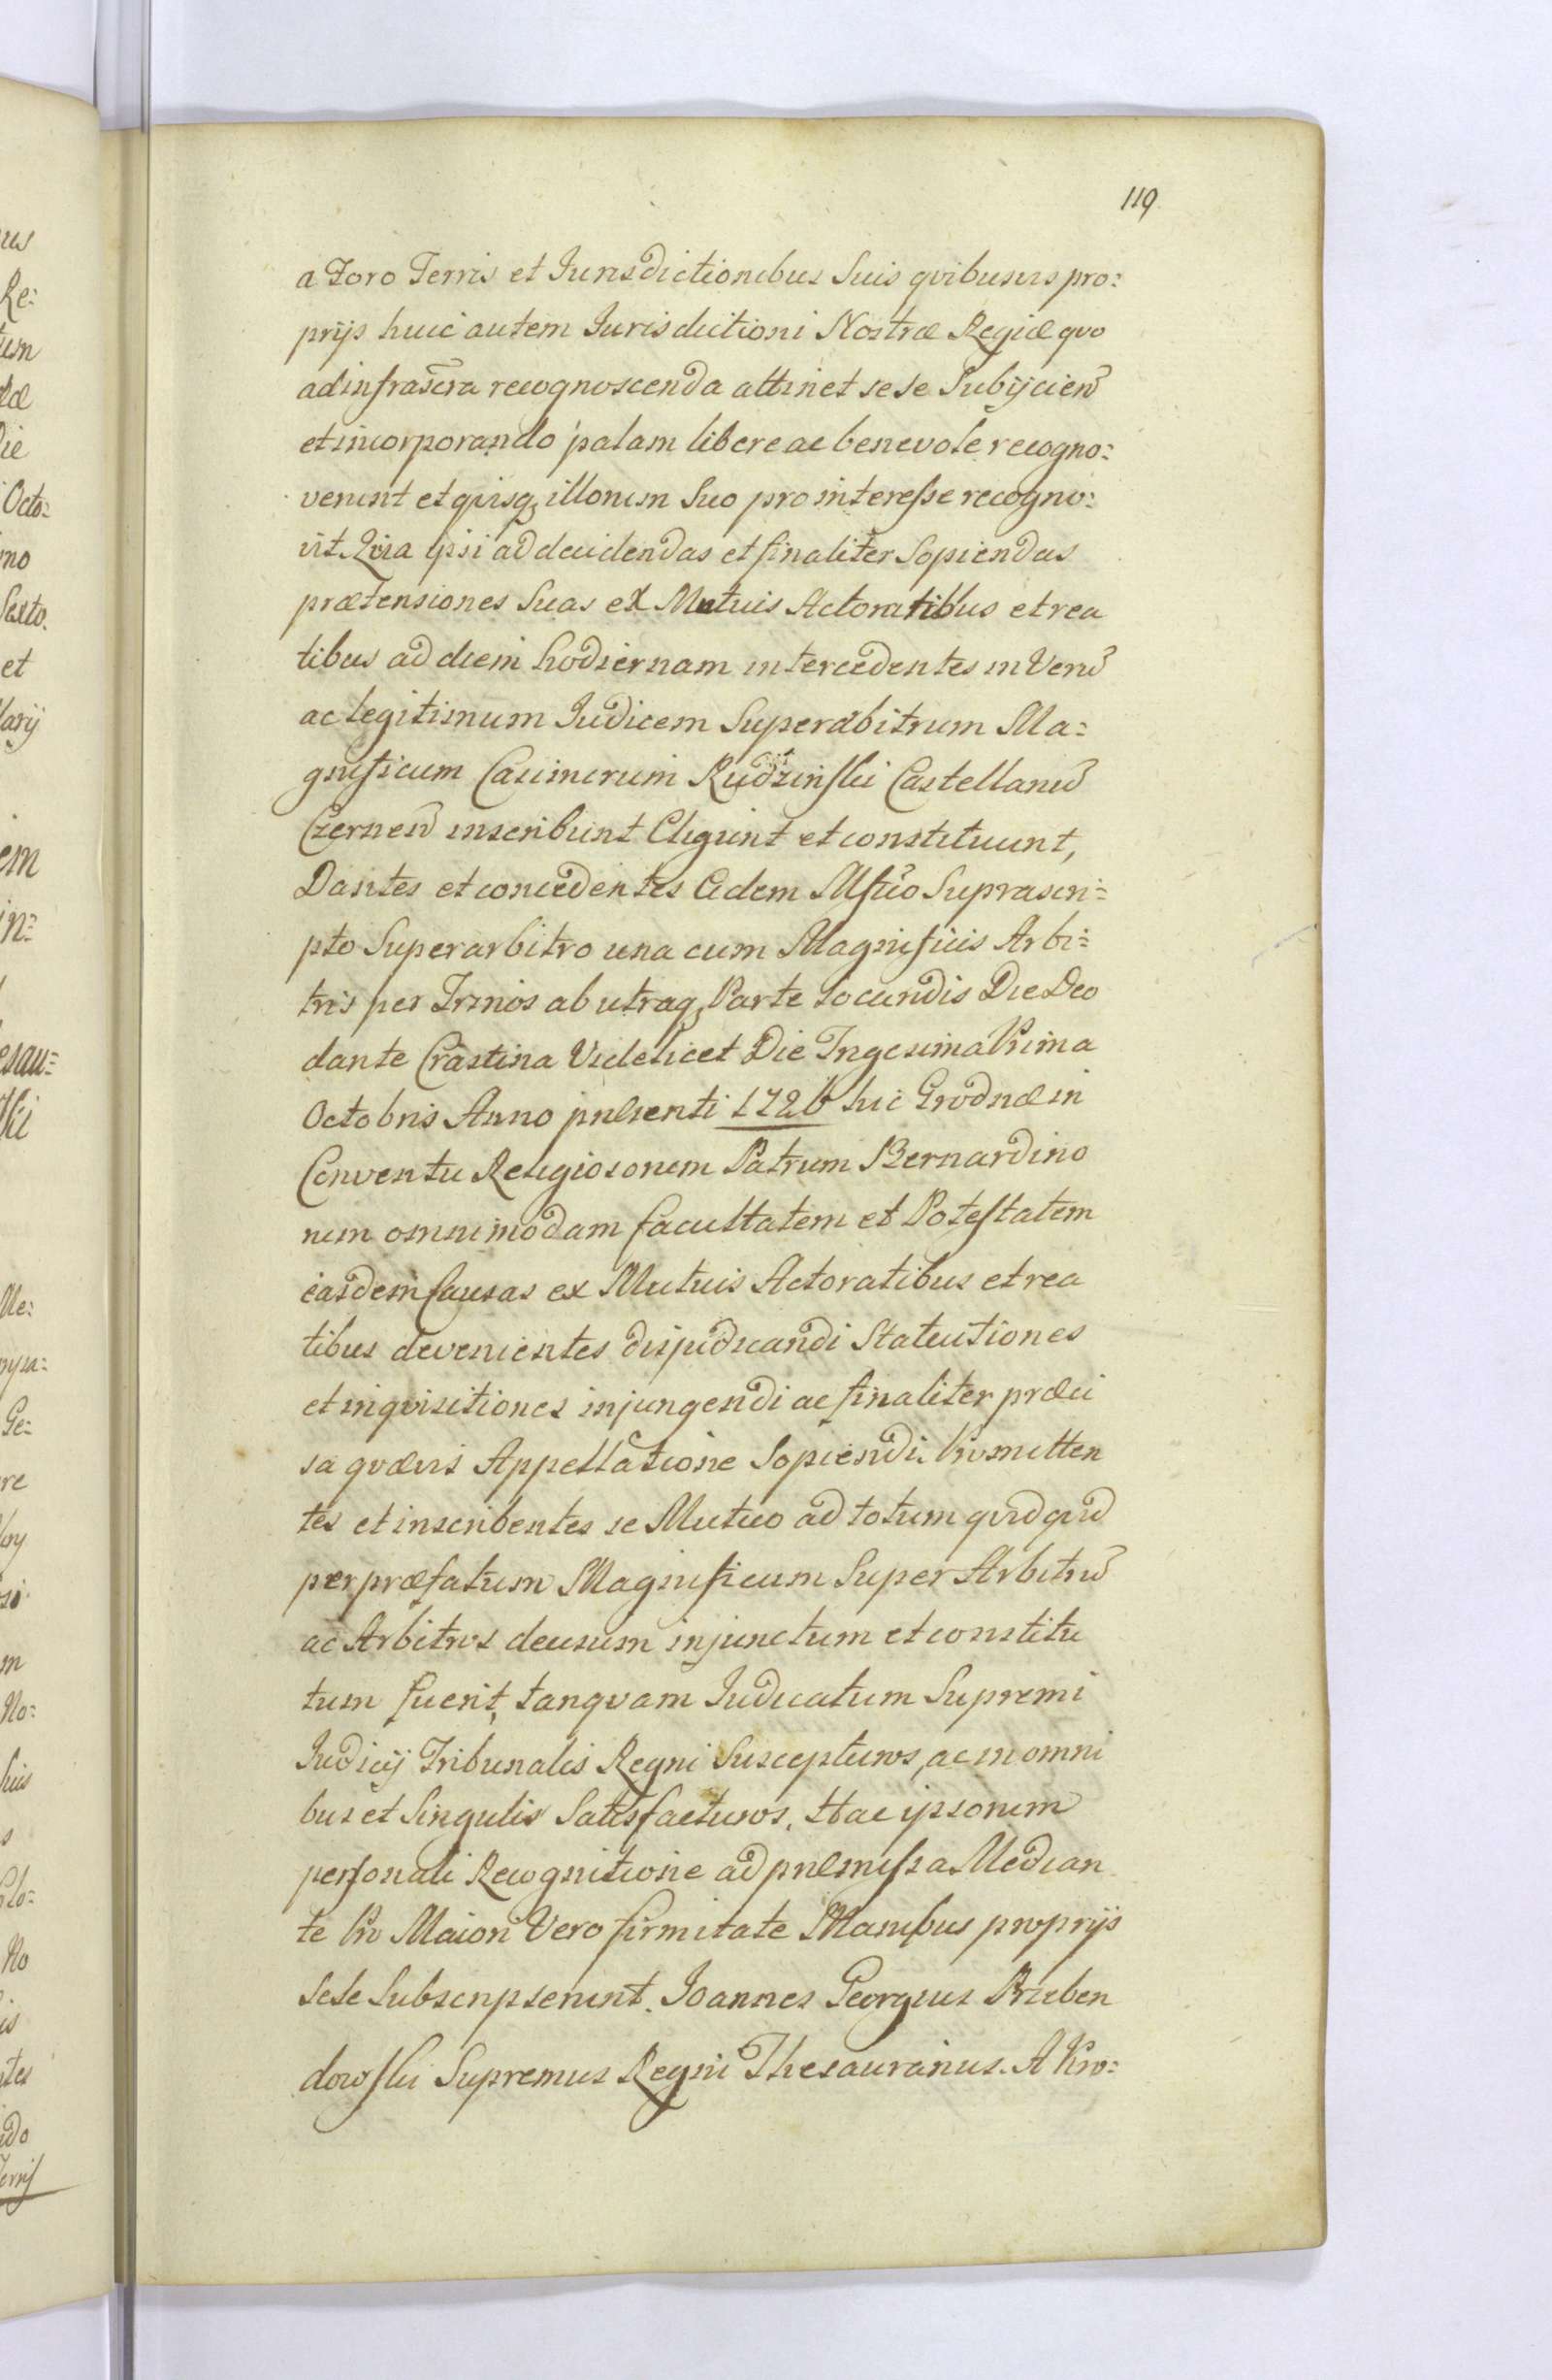 119
a Foro Terris et Jurisdictionibus Suis qvibusvis pro:
prijs huic autem Jurisdictioni Nostræ Regiæ qvo
ad infrascra recognoscenda attinet sese Subijcien̄
et incorporando palam libere ac benevole recogno:
verunt et qvisq, illorum Suo pro interesse recogno:
vit. Qvia ipsi ad decidendas et finaliter Sopiendas
prætensiones Suas ex Mutuis Actoratibus et rea
tibus ad diem hodiernam intercedentes in Verū
ac legitimum Judicem Superarbitrum Ma:
gnificum Casimirum Rudzinski Castellanū
Czernen̄ inscribunt Eligunt et constituunt,
Dantes et concedentes Eidem Mfico Suprascri:
pto Superarbitro una cum Magnificis Arbi:
tris per Trinos ab utraq, Parte locandis Die Deo
dante Crastina Videlicet Die Trigesima Prima
Octobris Anno præsenti 1726 hic Grodnæ in
Conventu Religiosorum Patrum Bernardino
rum omnimodam facultatem et Potestatem
easdem Causas ex Mutuis Actoratibus et rea
tibus devenientes dijudicandi Statuitiones
et inqvisitiones injungendi ac finaliter præci
sa qvavis Appellatione Sopiendi. Promitten
tes et inscribentes se Mutuo ad totum qvidqvid
per præfatum Magnificum Super Arbitrū
ac Arbitros decisum injunctum et constitu
tum fuerit, tanqvam Judicatum Supremi
Judicij Tribunalis Regni Suscepturos, ac in omni
bus et Singulis Satisfacturos. Hac ipsorum
personali Recognitione ad præmissa Median
te Pro Maiori Vero firmitate Manibus proprijs
Sese Subscripserunt. Joannes Georgius Przeben
dowski Supremus Regni Thesaurarius. A Kro: